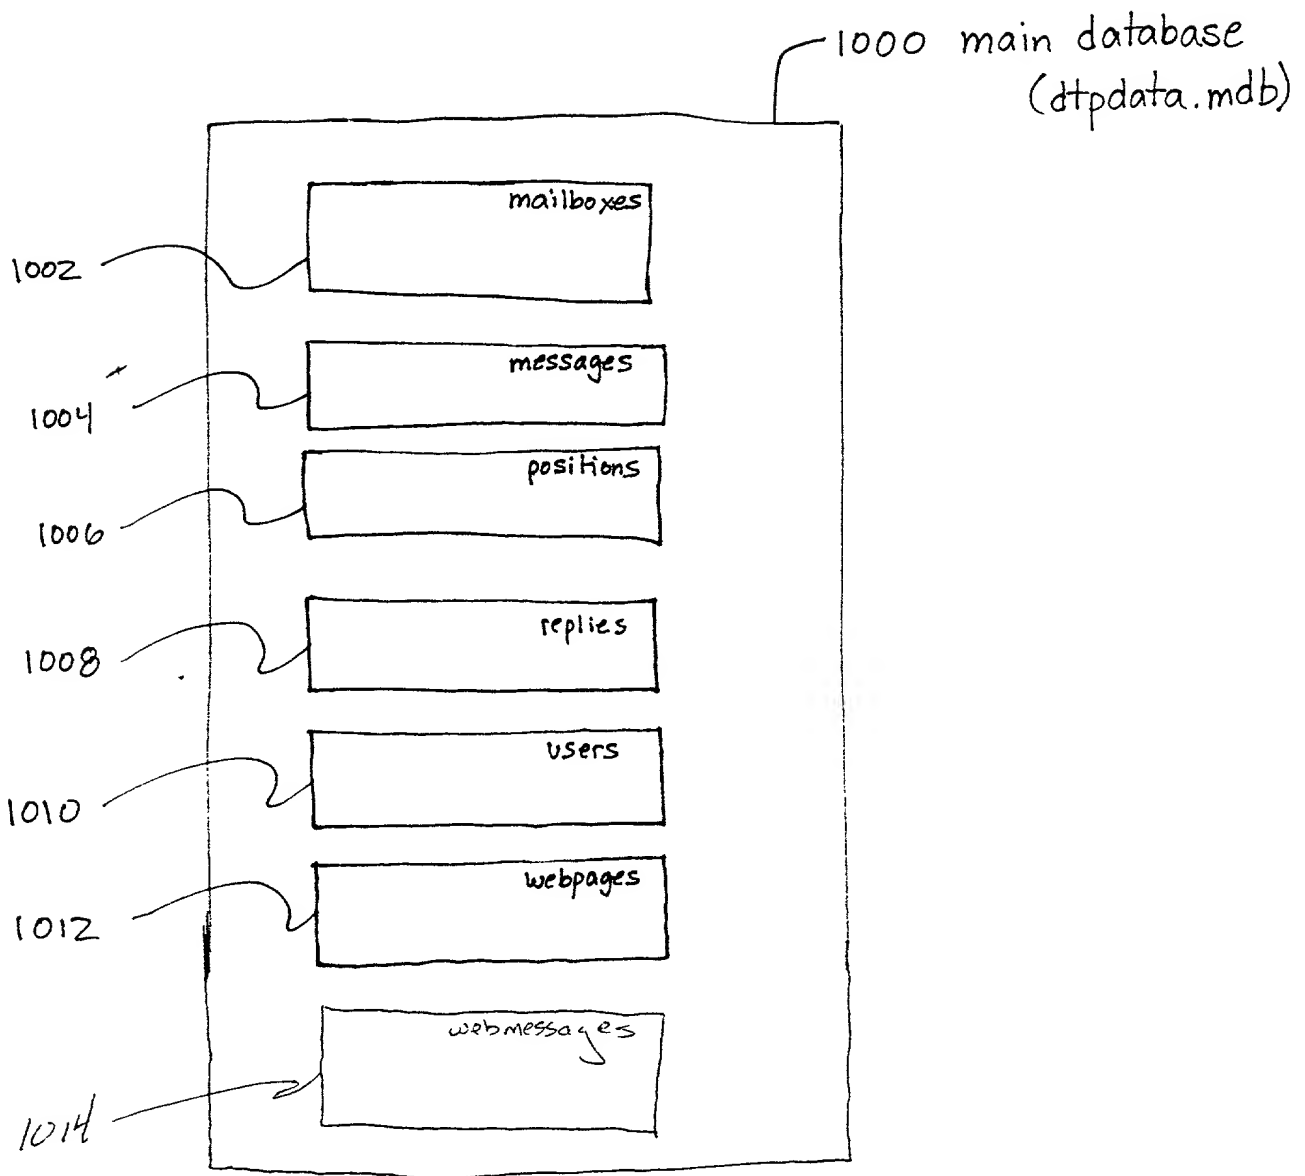 1000 main database
(dtpdata.mdb)
mailboxes
1002
messages
1004
positions
1006
replies
1008
users
1010
webpages
1012
webmessages
1014